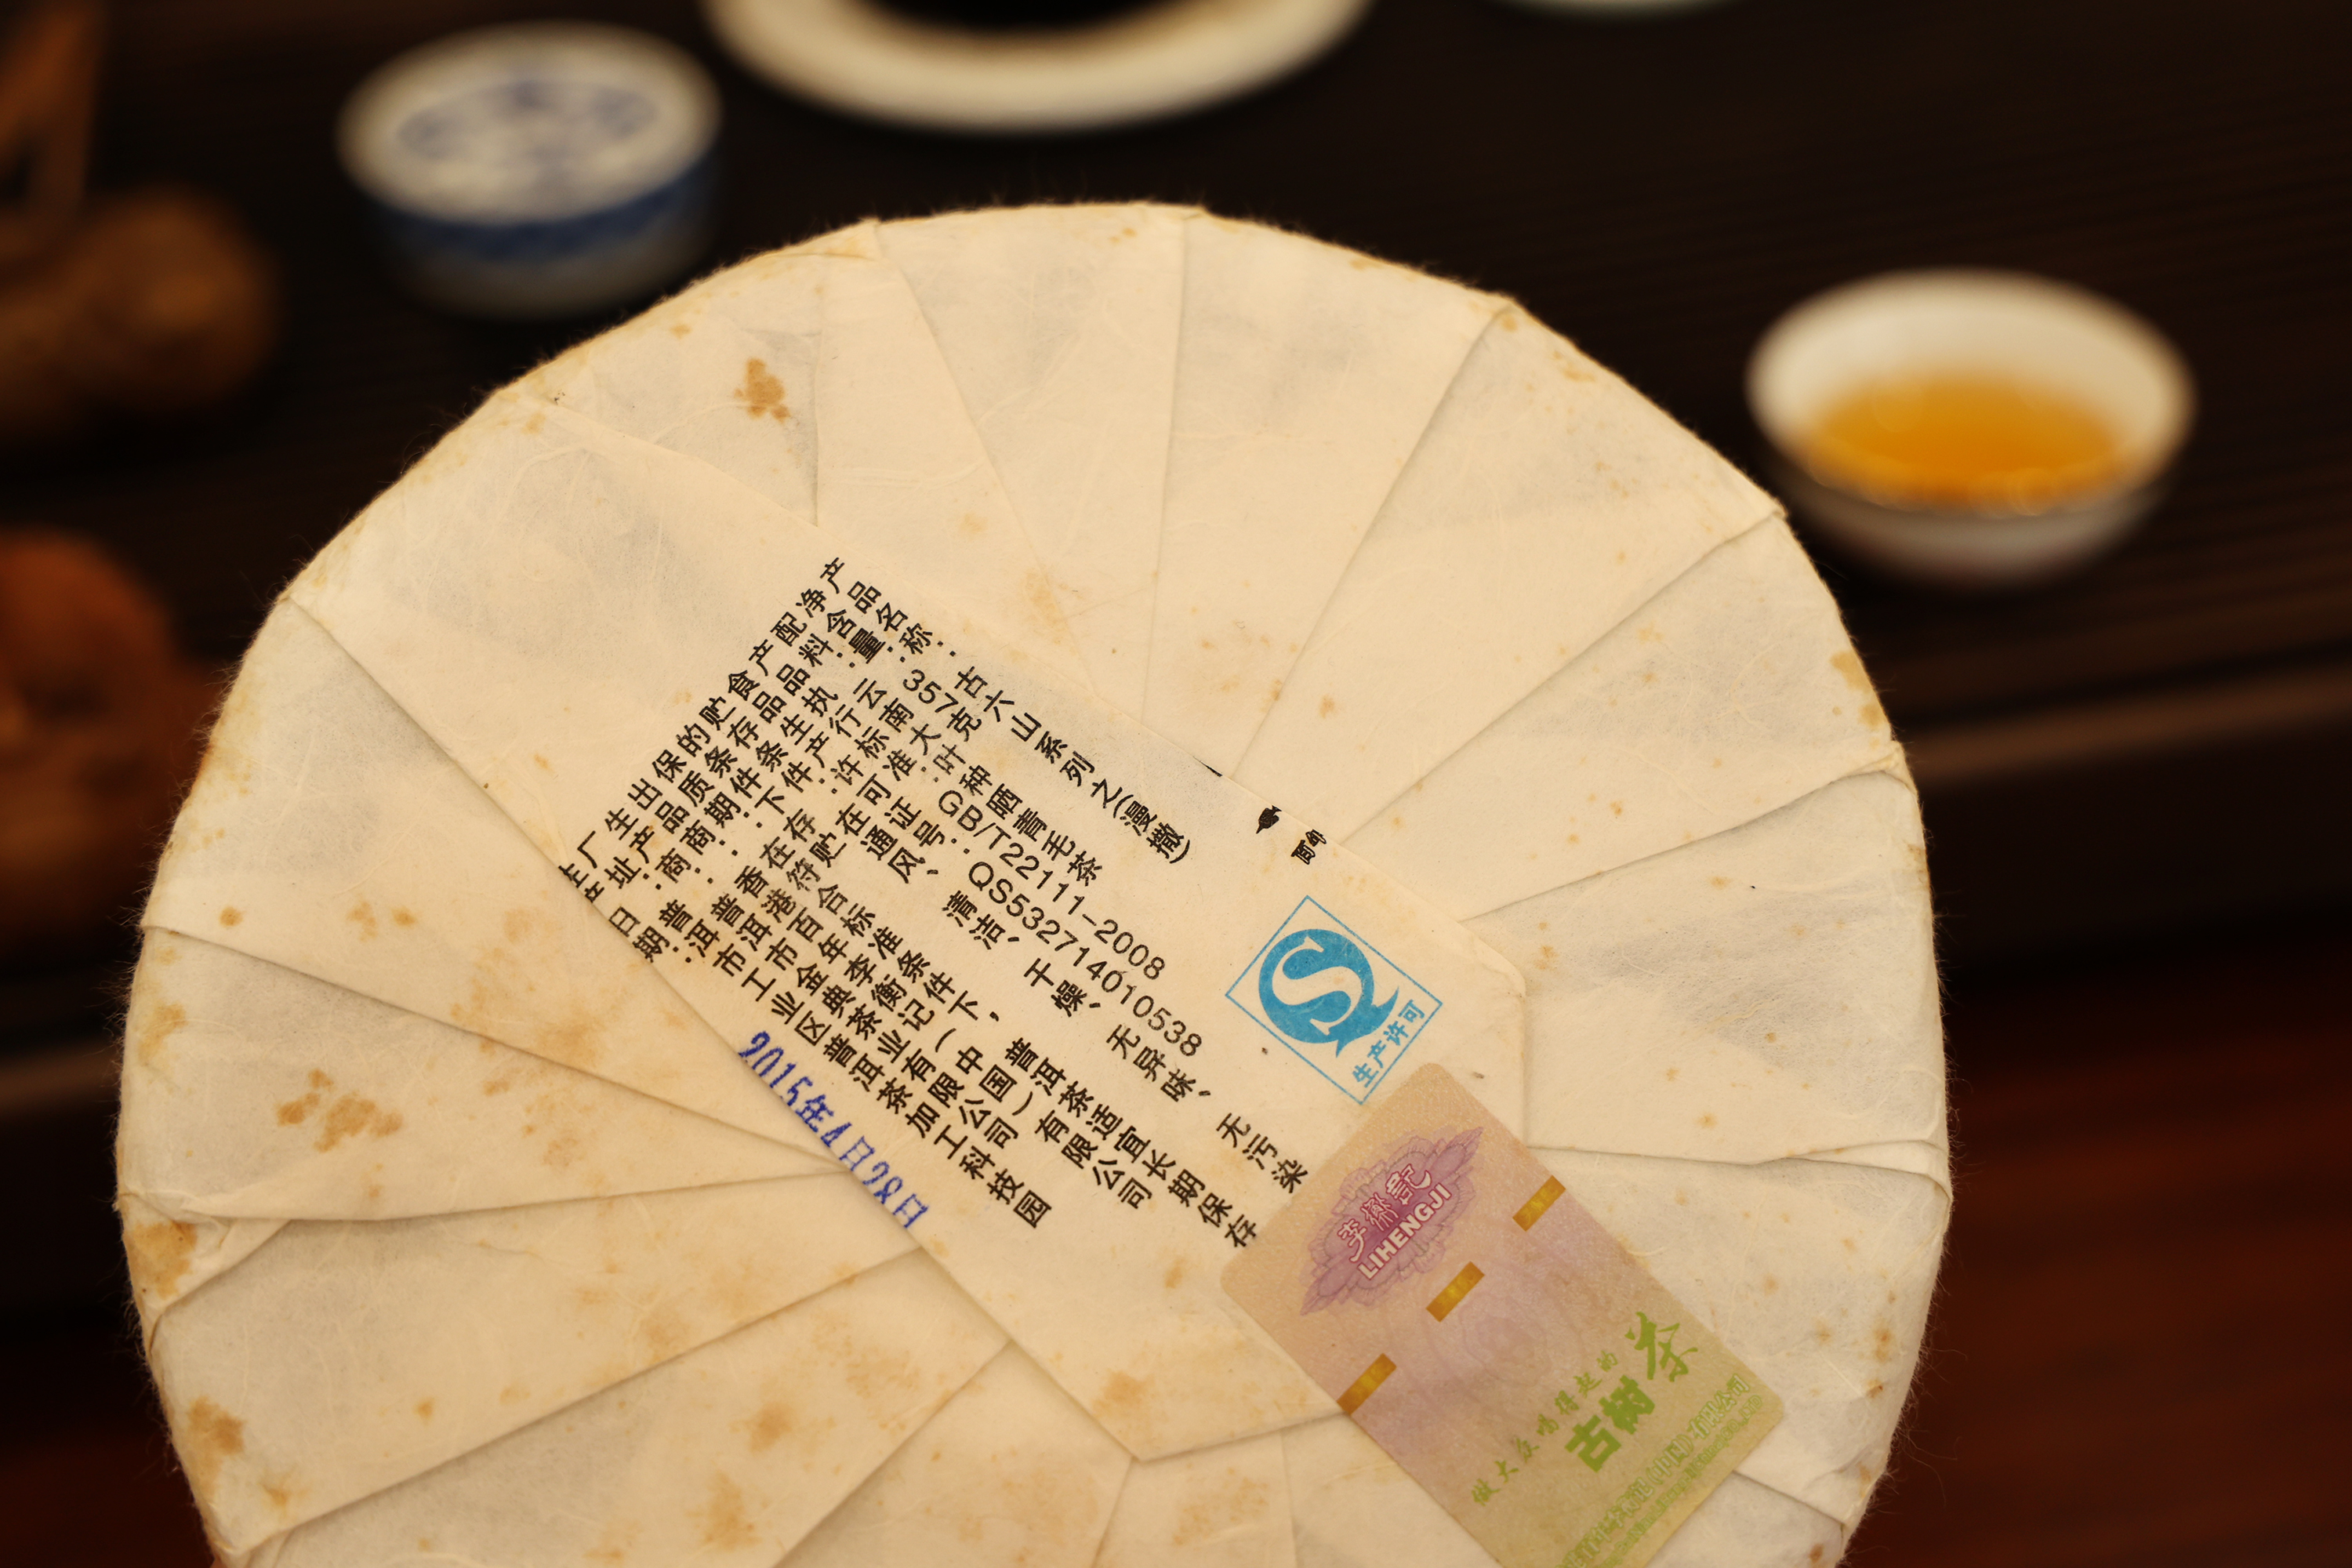 产品名称:古六山系列之(漫撒)
净含量:357克
配料:云南大叶种晒青毛茶
产品执行标准:GB/T22111-2008
食品生产许可证号:QS532714010538
贮存条件:在通风、清洁、干燥、无异味、无污染
的条件下存贮
保质期:在符合标准条件下,普洱茶适宜长期保存
出品商:香港百年李衡记(中国)有限公司
生产商:普洱市金典茶业有限公司
厂址:普洱市工业区普洱茶加工科技园
生产日期:2015年4月28日
生产许可
李衡記
LIHENGJI
做大众喝得起的
古树茶
有限公司